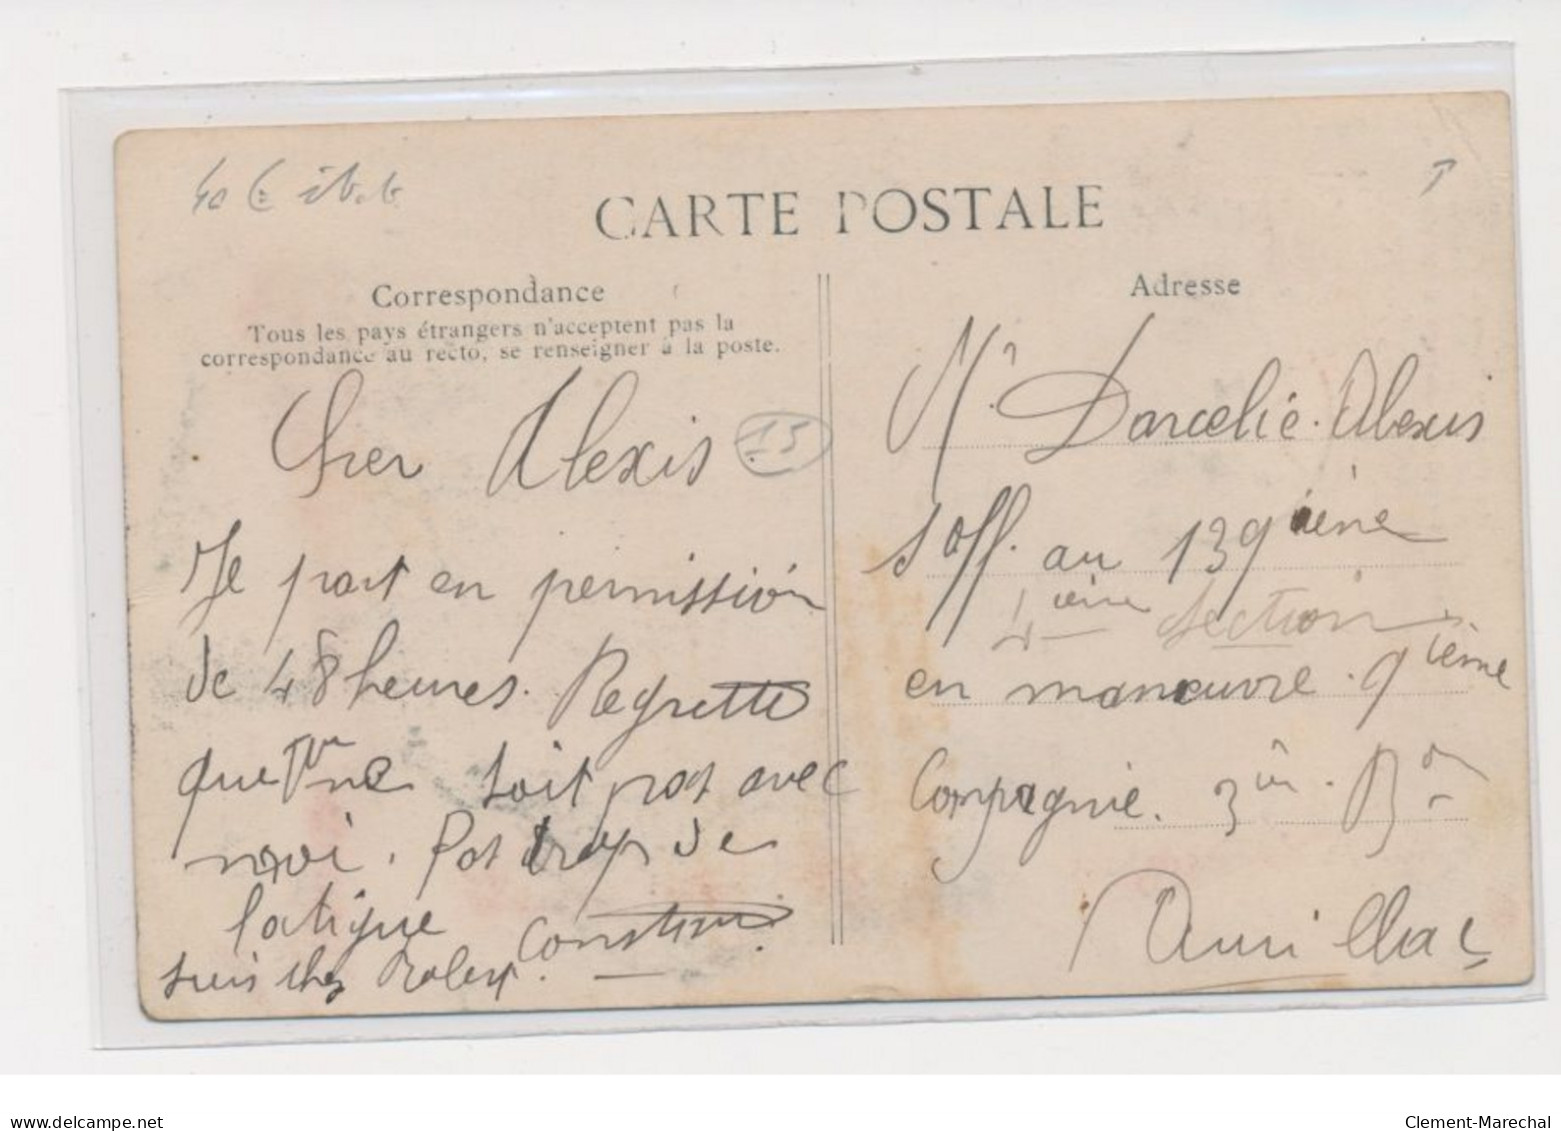 CARTE POSTALE
Correspondance
Tous les pays étrangers n'acceptent pas la
correspondance au recto, se renseigner à la poste.
Cher Alexis.
15
Je part en permission
de 48 heures. Regrette
que ne soit pas avec
moi. Pas trop de
fatigue
suis chez
Adresse
Mr. Darcelié. Alexis
s/off. au 139 ième
4 ème section
en manœuvre. 9 ième
Compagnie. 3 ème. Bon
Aurillac
Clement-Marechal
www.delcampe.net